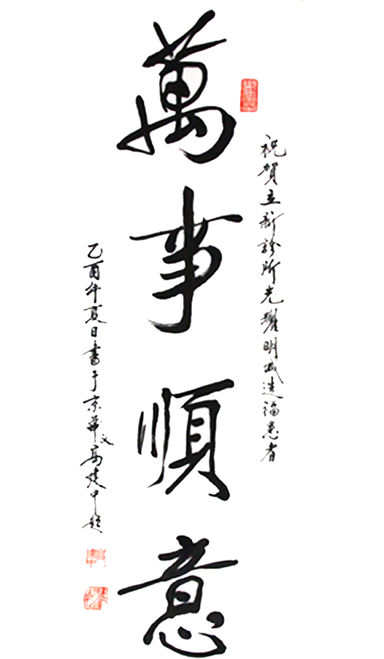 祝賀立新診所光耀明城造福患者
萬事順意
乙酉年夏日書于京華高建中題